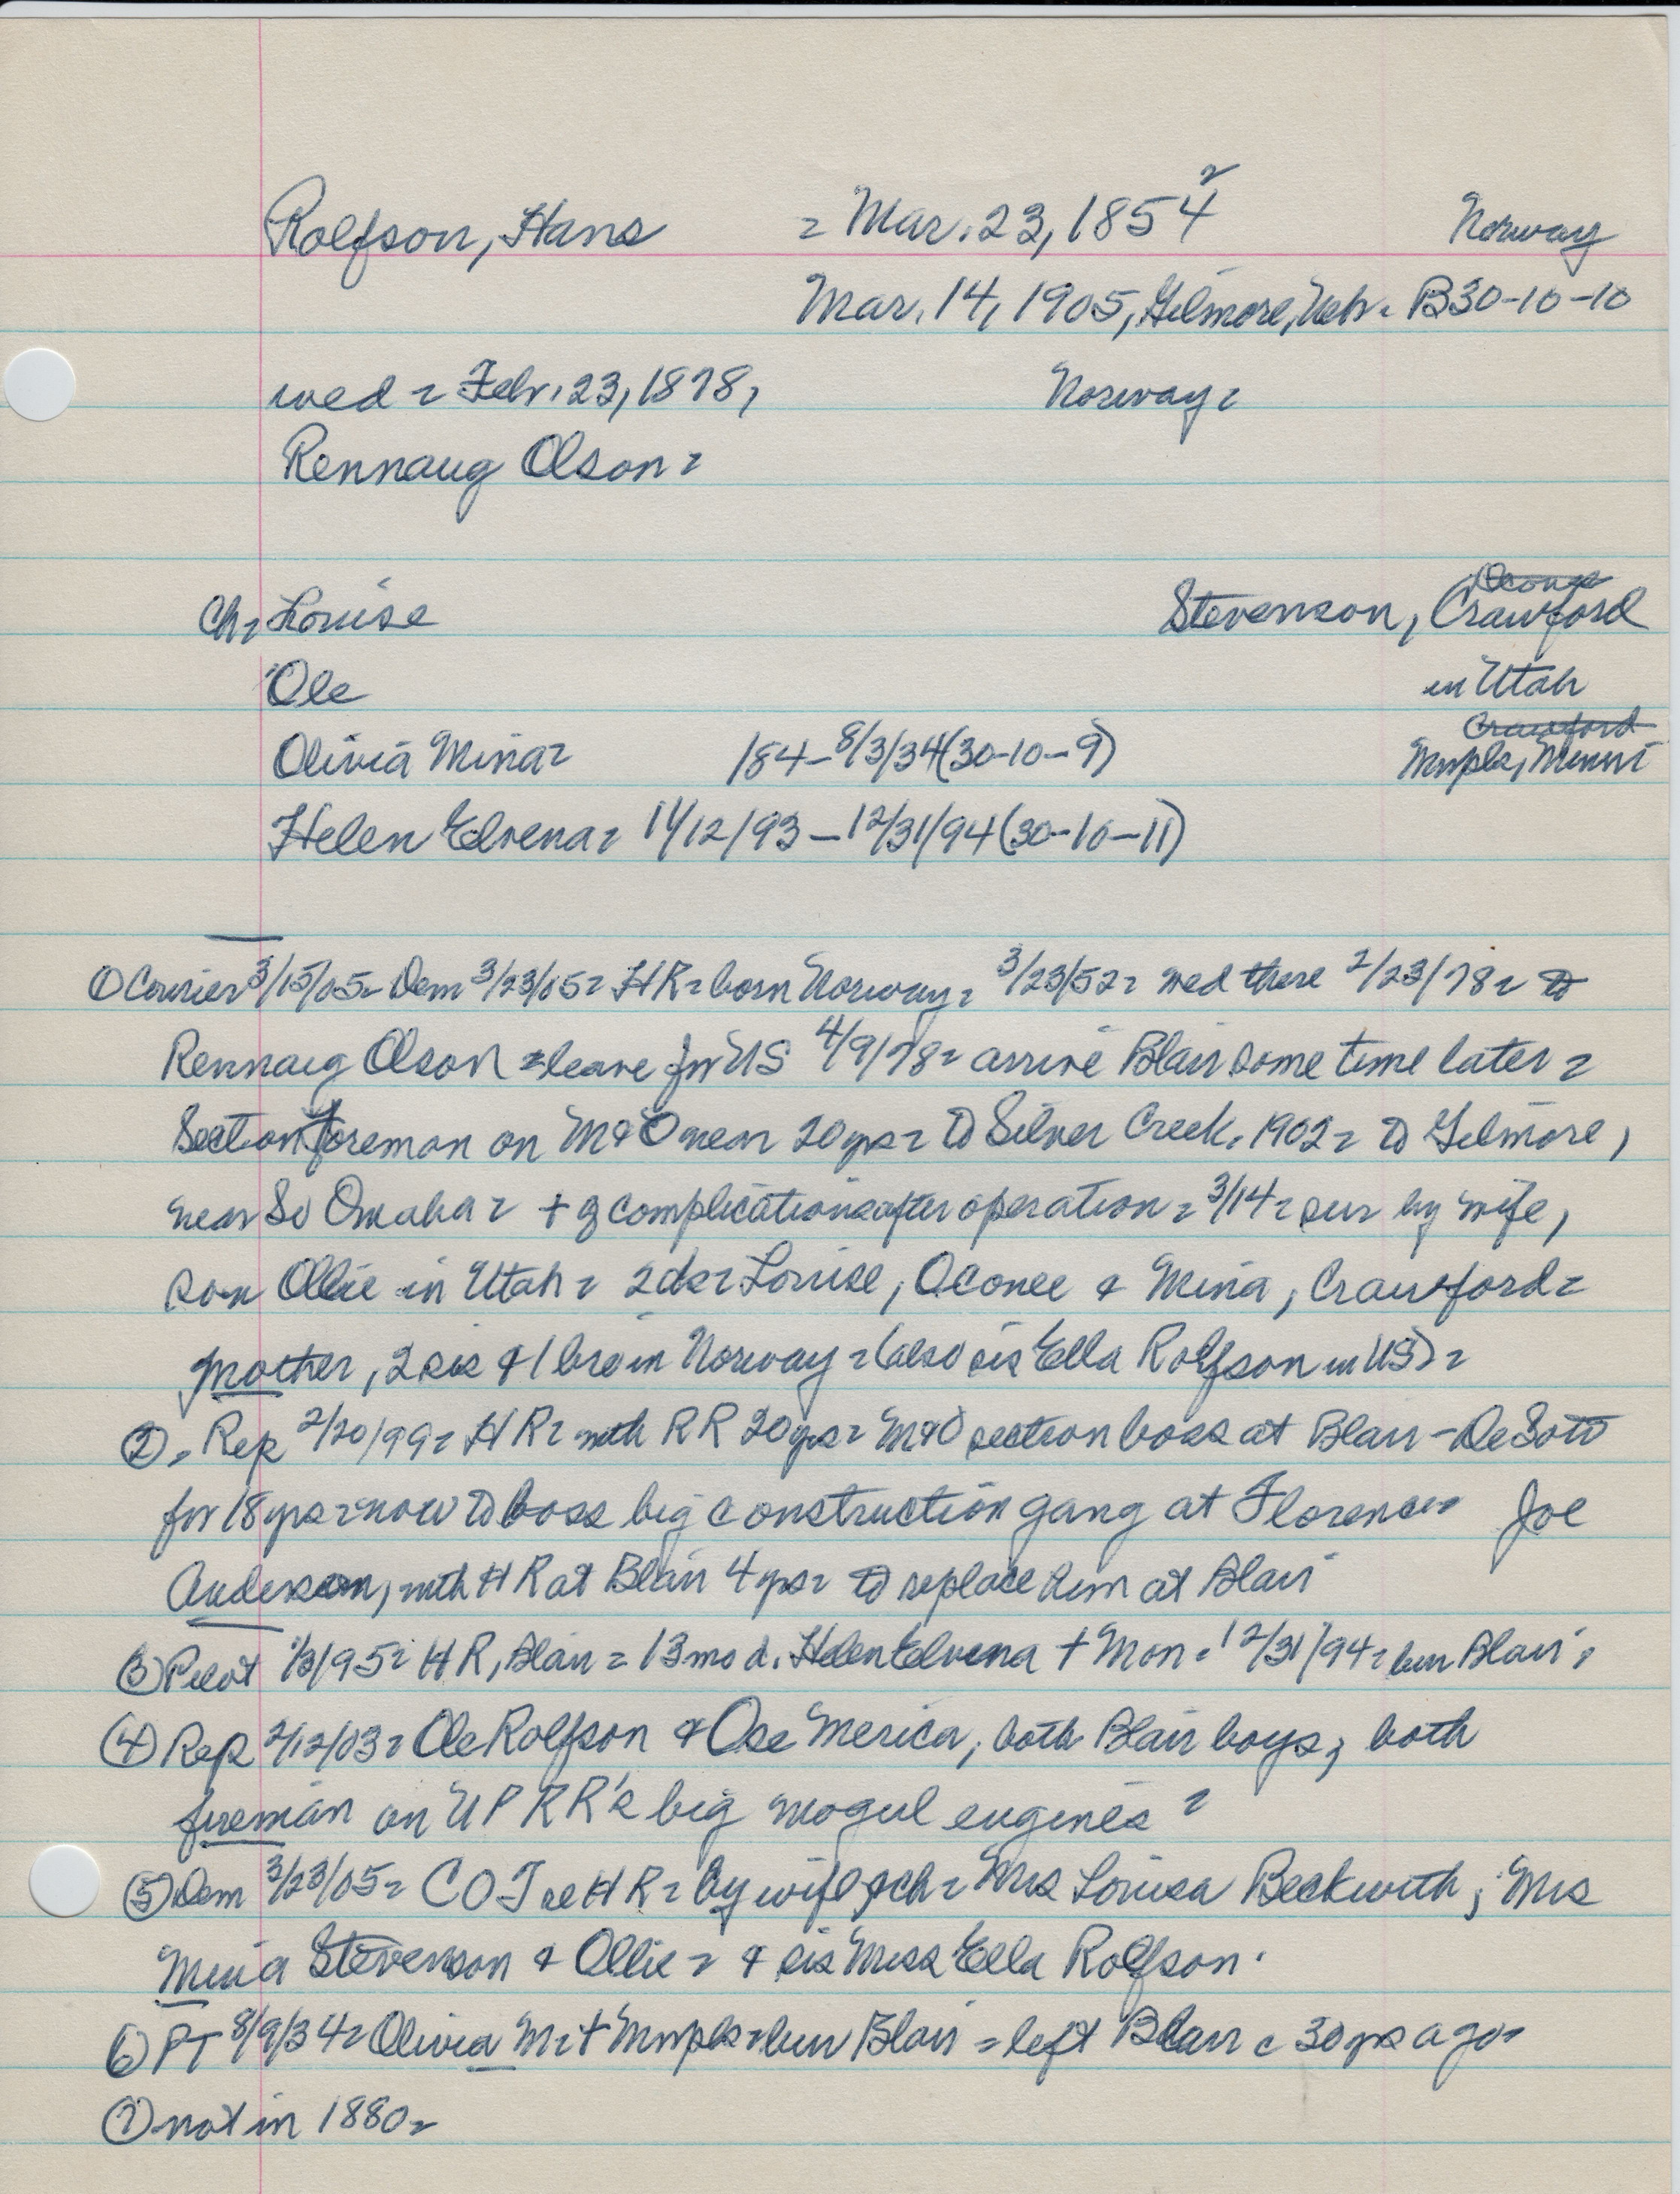 Rolfson, Hans = Mar. 23, 1854 2 Norway
Mar. 14, 1905, Gilmore, Nebr. B30-10-10
wed = Febr. 23, 1878, Norway =
Rennaug Olson =
Oconee
Ch = Louise Stevenson, Crawford
Ole in Utah
Crawford
Olivia Mina = 184- 8/3/34 (30-10-9) Mnpls, Minn
Helen Elvena = 11/12/93 - 12/31/94 (30-10-11)
① Courier 3/15/05 = Dem 3/23/05 = HR = born Norway = 3/23/52 = wed there 2/23/78 = to
Rennaug Olson = leave for US 4/9/78 = arrive Blair some time later =
Section foreman on M&O near 20 yrs = to Silver Creek, 1902 = to Gilmore,
near So Omaha = + of complications after operation = 3/14 = sur by wife,
son Ollie in Utah = 2 ds = Louise, Oconee & Mina, Crawford =
mother, 2 sis & 1 bro in Norway = (also sis Ella Rolfson in US) =
② = Rep 2/20/99 = HR = with RR 20 yrs = M&O section boss at Blair - DeSoto
for 18 yrs = now to boss big construction gang at Florence = Joe
Anderson, with HR at Blair 4 yrs = to replace him at Blair
③ Pilot 1/3/95 = HR, Blair = 13 mo d. Helen Elvena + Mon. 12/31/94 = bur Blair =
④ Rep 2/12/03 = Ole Rolfson & Ose Merica, both Blair boys, both
fireman on UP RR's big mogul engines =
⑤ Dem 3/23/05 = COT re HR = by wife & ch = Mrs Louisa Beckwith, Mrs
Mina Stevenson & Ollie = & sis Miss Ella Rolfson.
⑥ PT 8/9/34 = Olivia M = + Mnpls = bur Blair = left Blair c 30 yrs ago =
⑦ not in 1880 =